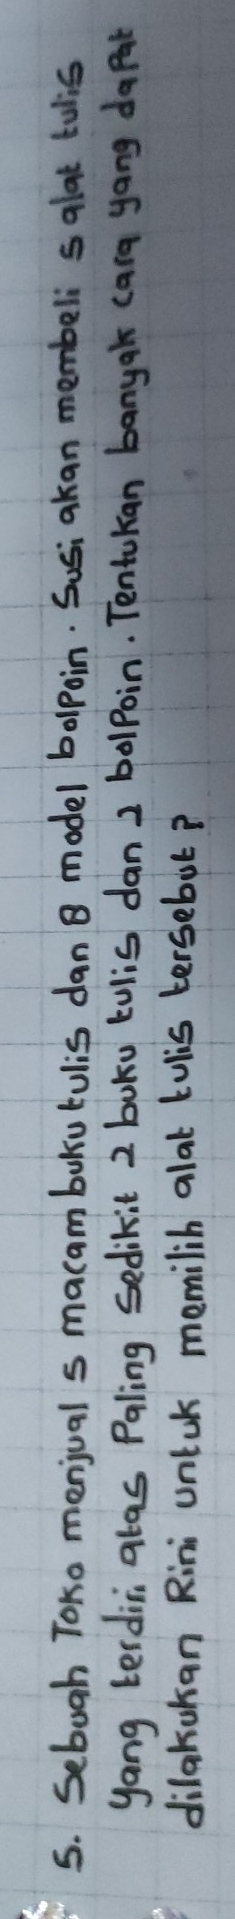 5. Sebuah Toko menjual 5 macam buku tulis dan 8 model bolpoin. Susi akan membeli 5 alat tulis
yang terdiri atas Paling sedikit 2 buku tulis dan 2 bolpoin. Tentukan banyak cara yang dapat
dilakukan Rini untuk memilih alat tulis tersebut?